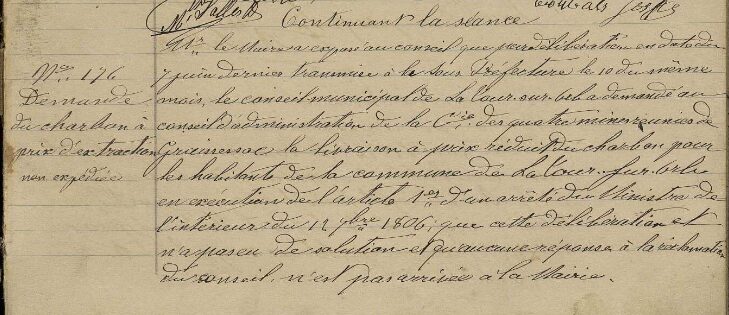 Continuant la séance
Mr le Maire a exposé au conseil que par délibération en date du
7 juin dernier transmise à la Sous-Préfecture le 10 du même
mois, le conseil municipal de La Tour-sur-orb a demandé au
conseil d'administration de la Cie des quatre mines réunies de
Graissessac la livraison à prix réduit du charbon pour
les habitants de la commune de La Tour-sur-orb
en exécution de l'article 1er d'un arrêté du Ministre de
l'intérieur du 12 9bre 1806; que cette délibération et
n'a pas eu de solution et qu'aucune réponse à la réclamation
du conseil, n'est pas arrivée à la Mairie.
No 176
Demande
du charbon à
prix d'extraction
non expédiée